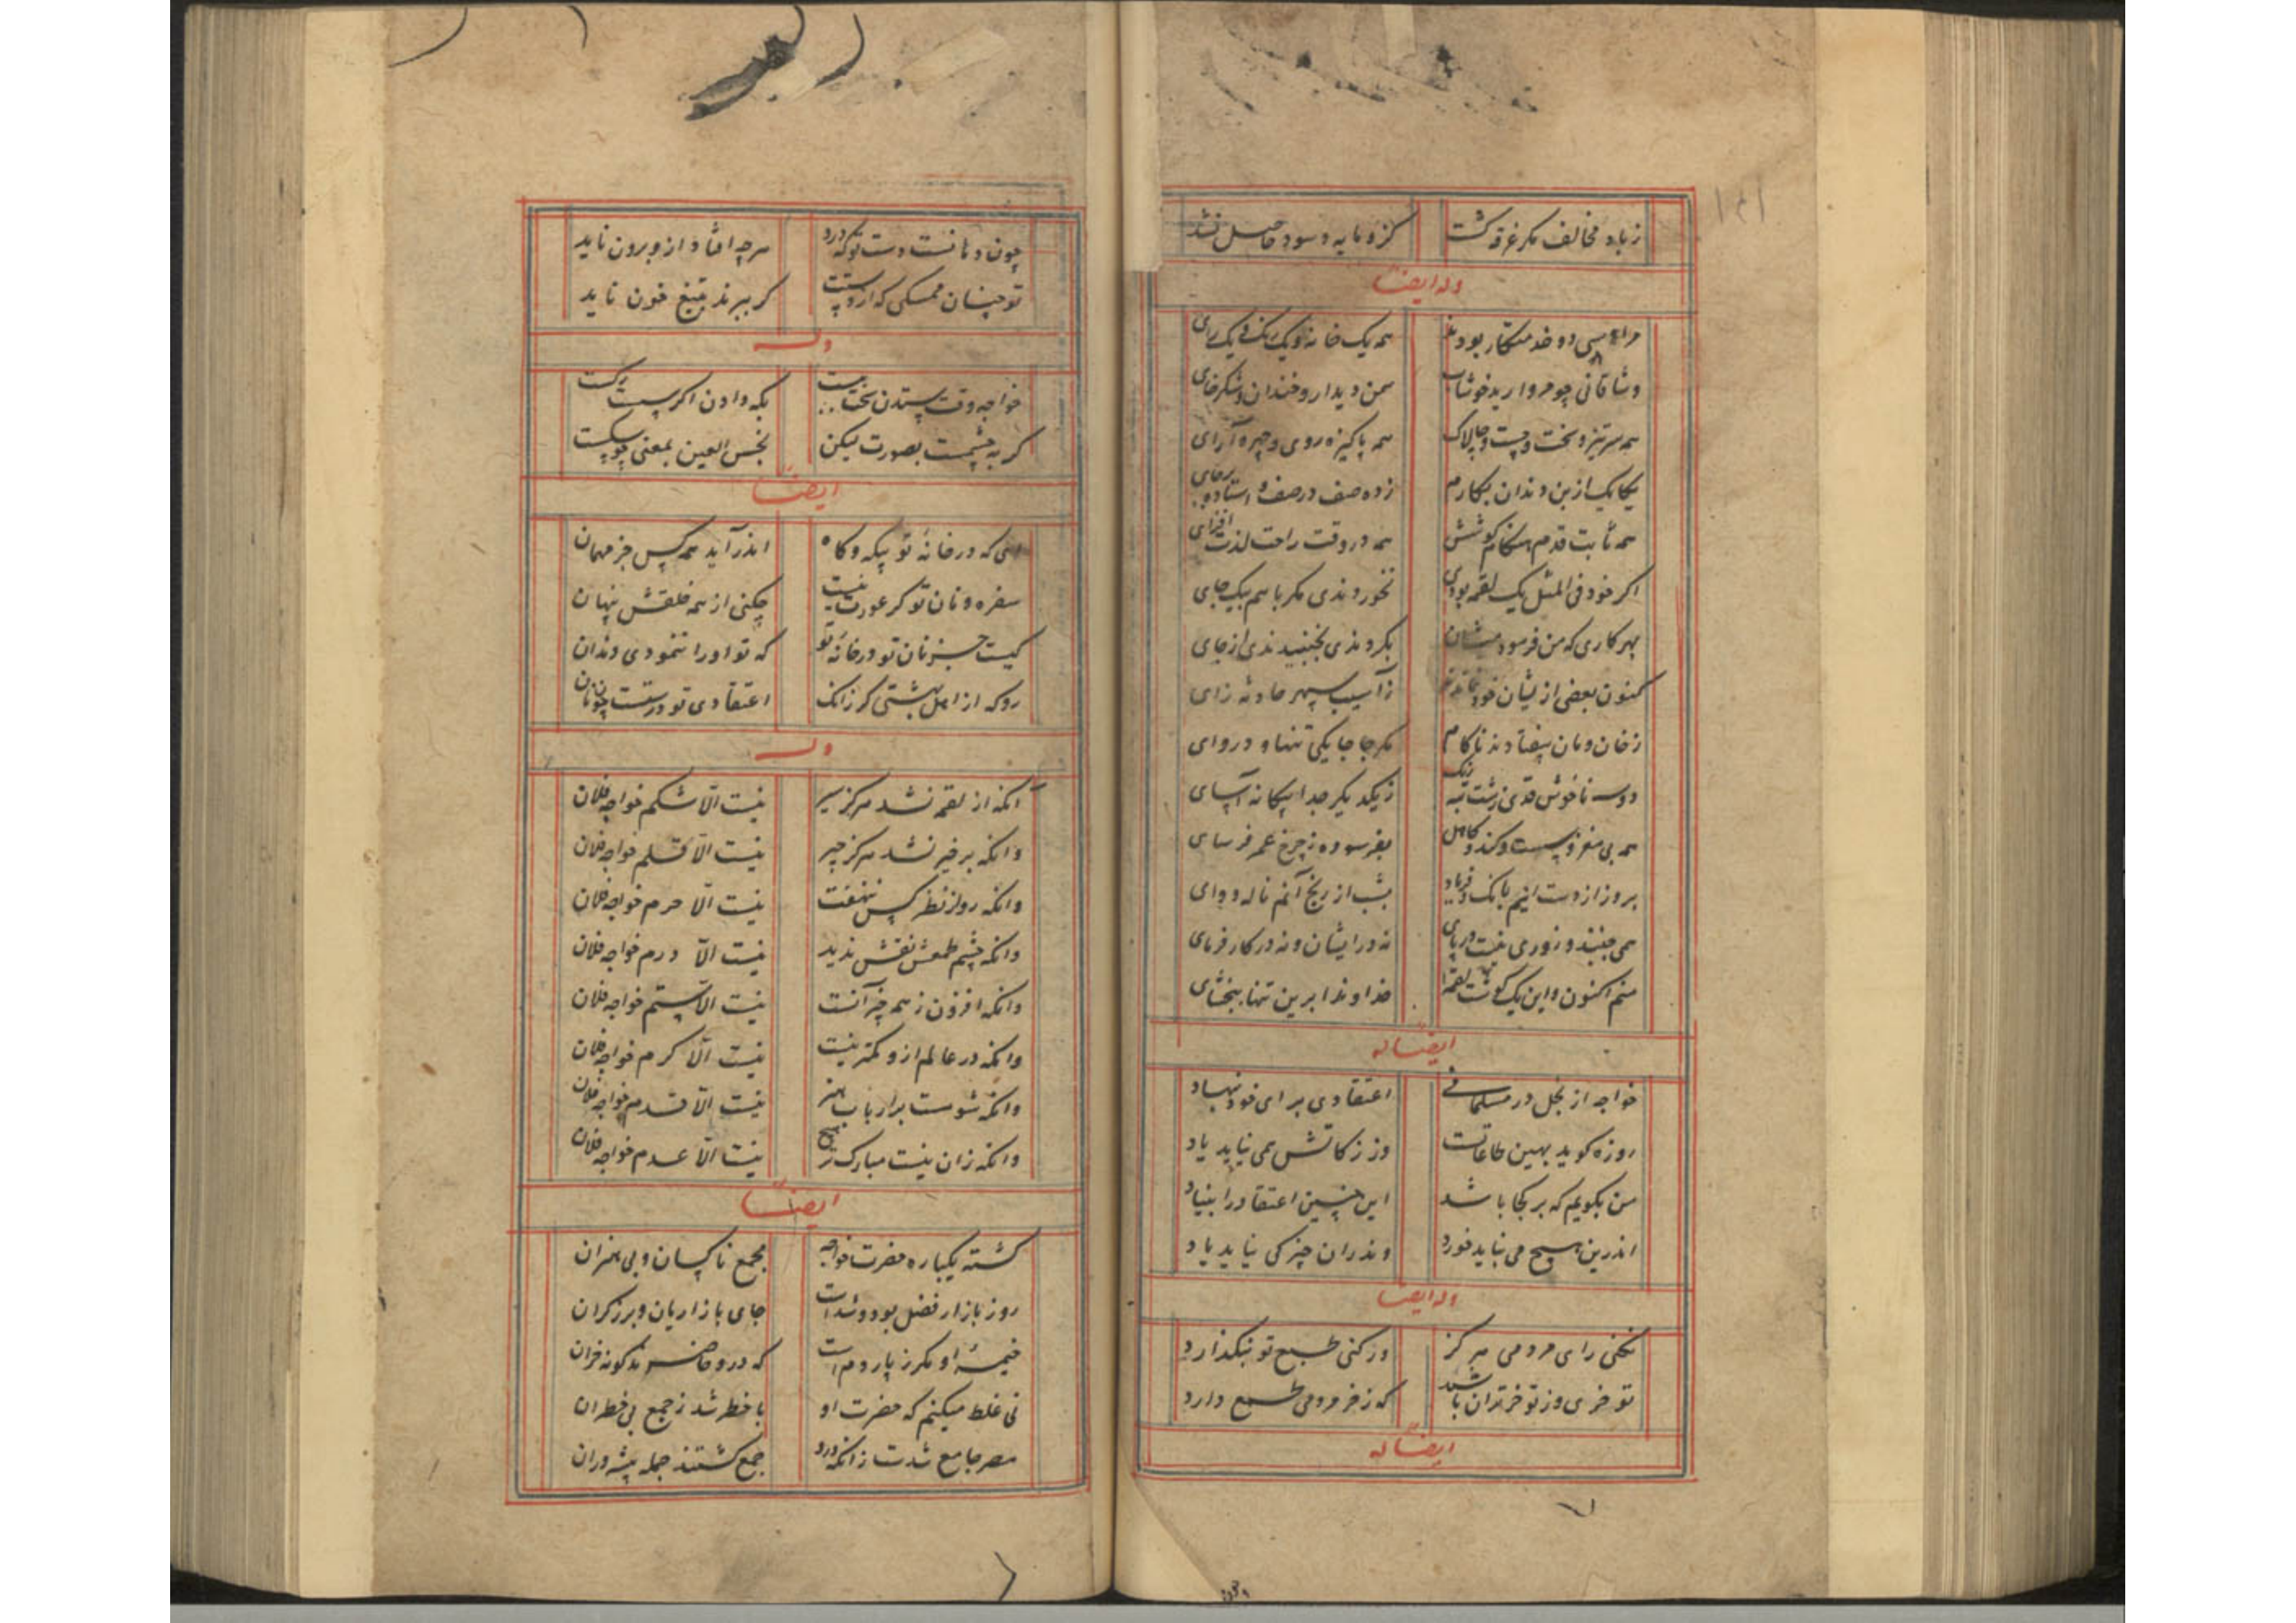 زباد مخالف مگر غرقه گشت کزو مایه و سود حاصل نشد
وله ایضاً
مرا سی و دو خدمتکار بودند همه یک خانه و یک رنگ و یک رای
وشاقانی چو مروارید خوشاب سمن دیدار و خندان و شکرخای
همه سرتیز و سخت و چست و چالاک همه پاکیزه روی و چهره آرای
یکایک از بن دندان بکارم زده صف در صف و استاده برپای
همه ثابت قدم هنگام کوشش همه در وقت راحت لذت افزای
اگر خود فی المثل یک لقمه بودی نخوردندی مگر با هم بیک جای
بهر کاری که من فرمودمیشان بکردندی بجنبیدندی از جای
کنون بعضی از یشان خود نماندند ز آسیب سپهر حادثه زای
ز خان و مان بیفتادند ناکام مگر جا جا یکی تنها و دروای
دوسه ناخوش قدی زشت تبه رنگ ز یکدیگر جدا بیگانه آسای
همه بی مغز و سست و کند و کاهل بفرسوده ز چرخ عمر فرسای
بروز از دست اینم بانک و فریاد بشب از رنج آنم ناله و وای
همی جنبند و زوری نیست در پای نه در ایشان و نه در کارفرمای
منم اکنون و این یک گوشت لقمه خداوندا برین تنها ببخشای
ایضاً له
خواجه از بخل در مسلمانی اعتقادی برای خود بنهاد
روزه گوید بهین طاعاتست وز زکاتش همی نیاید یاد
من بگویم که بر کجا باشد این چنین اعتقاد را بنیاد
اندرین هیچ می نباید خورد وندران چیزکی نیاید یاد
وله ایضا
نکنی رای مردمی هرگز ور کنی طبع تو بنگذارد
تو خری وز تو خرتر آن باشد که ز خر مردمی طمع دارد
ایضاً له
چون دهانست دست تو که درو هرچه افتاد ازو برون ناید
تو چنان ممسکی که از دستت گر ببرند بتیغ خون ناید
وله
خواجه وقت ستدن سختست بگه دادن اگر سست رگست
گر به چشمت بصورت لیکن نجس العین بمعنی چو سگست
ایضاً
ای که در خانهٔ تو بیگه و گاه اندر آید همه کس جز مهمان
سفره و نان تو گر عورت نیست چکنی از همه خلقش پنهان
کیست جز نان تو در خانهٔ تو که تو او را ننمودی دندان
رو که از اهل بهشتی گر زانک اعتقادی تو درستست چو نان
وله
انکه از لقمه نشد هرگز سیر نیست الّا شکم خواجه فلان
وانکه بر خیر نشد هرگز چیر نیست الّا قلم خواجه فلان
وانکه رو از نظر کس ننهفت نیست الّا حرم خواجه فلان
وانکه چشم طمعش نقش ندید نیست الّا درم خواجه فلان
وانکه افزون ز همه چیز آنست نیست الّا ستم خواجه فلان
وانکه در عالم ازو کمتر نیست نیست الّا کرم خواجه فلان
وانکه شومست بر ارباب هنر نیست الّا قدم خواجه فلان
وانکه زان نیست مبارک تر هیچ نیست الّا عدم خواجه فلان
ایضاً
گشته یکباره حضرت خواجه مجمع ناکسان و بی هنران
روز بازار فضل بود و شداست جای بازاریان و برزگران
خیمهٔ او مگر ز پاردم است که درو حاضرند گونه خران
نی غلط میکنم که حضرت او با خطر شد ز جمع بی خطران
مصر جامع شدست زانکه درو جمع گشتند جمله پیشه وران